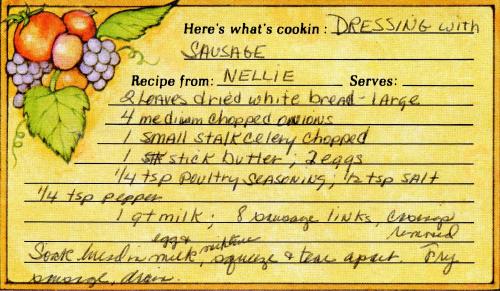 Here's what's cookin: DRESSING with
SAUSAGE
Recipe from: NELLIE Serves:
2 Loaves dried white bread - large
4 medium chopped onions
1 small stalk celery chopped
1 stick butter; 2 eggs
1/4 tsp Poultry Seasoning; 1/2 tsp salt
1/4 tsp pepper
1 qt milk; 8 sausage links, coverings
removed
egg & mixture
Soak bread in milk, squeeze & tear apart. Fry
sausage, drain.